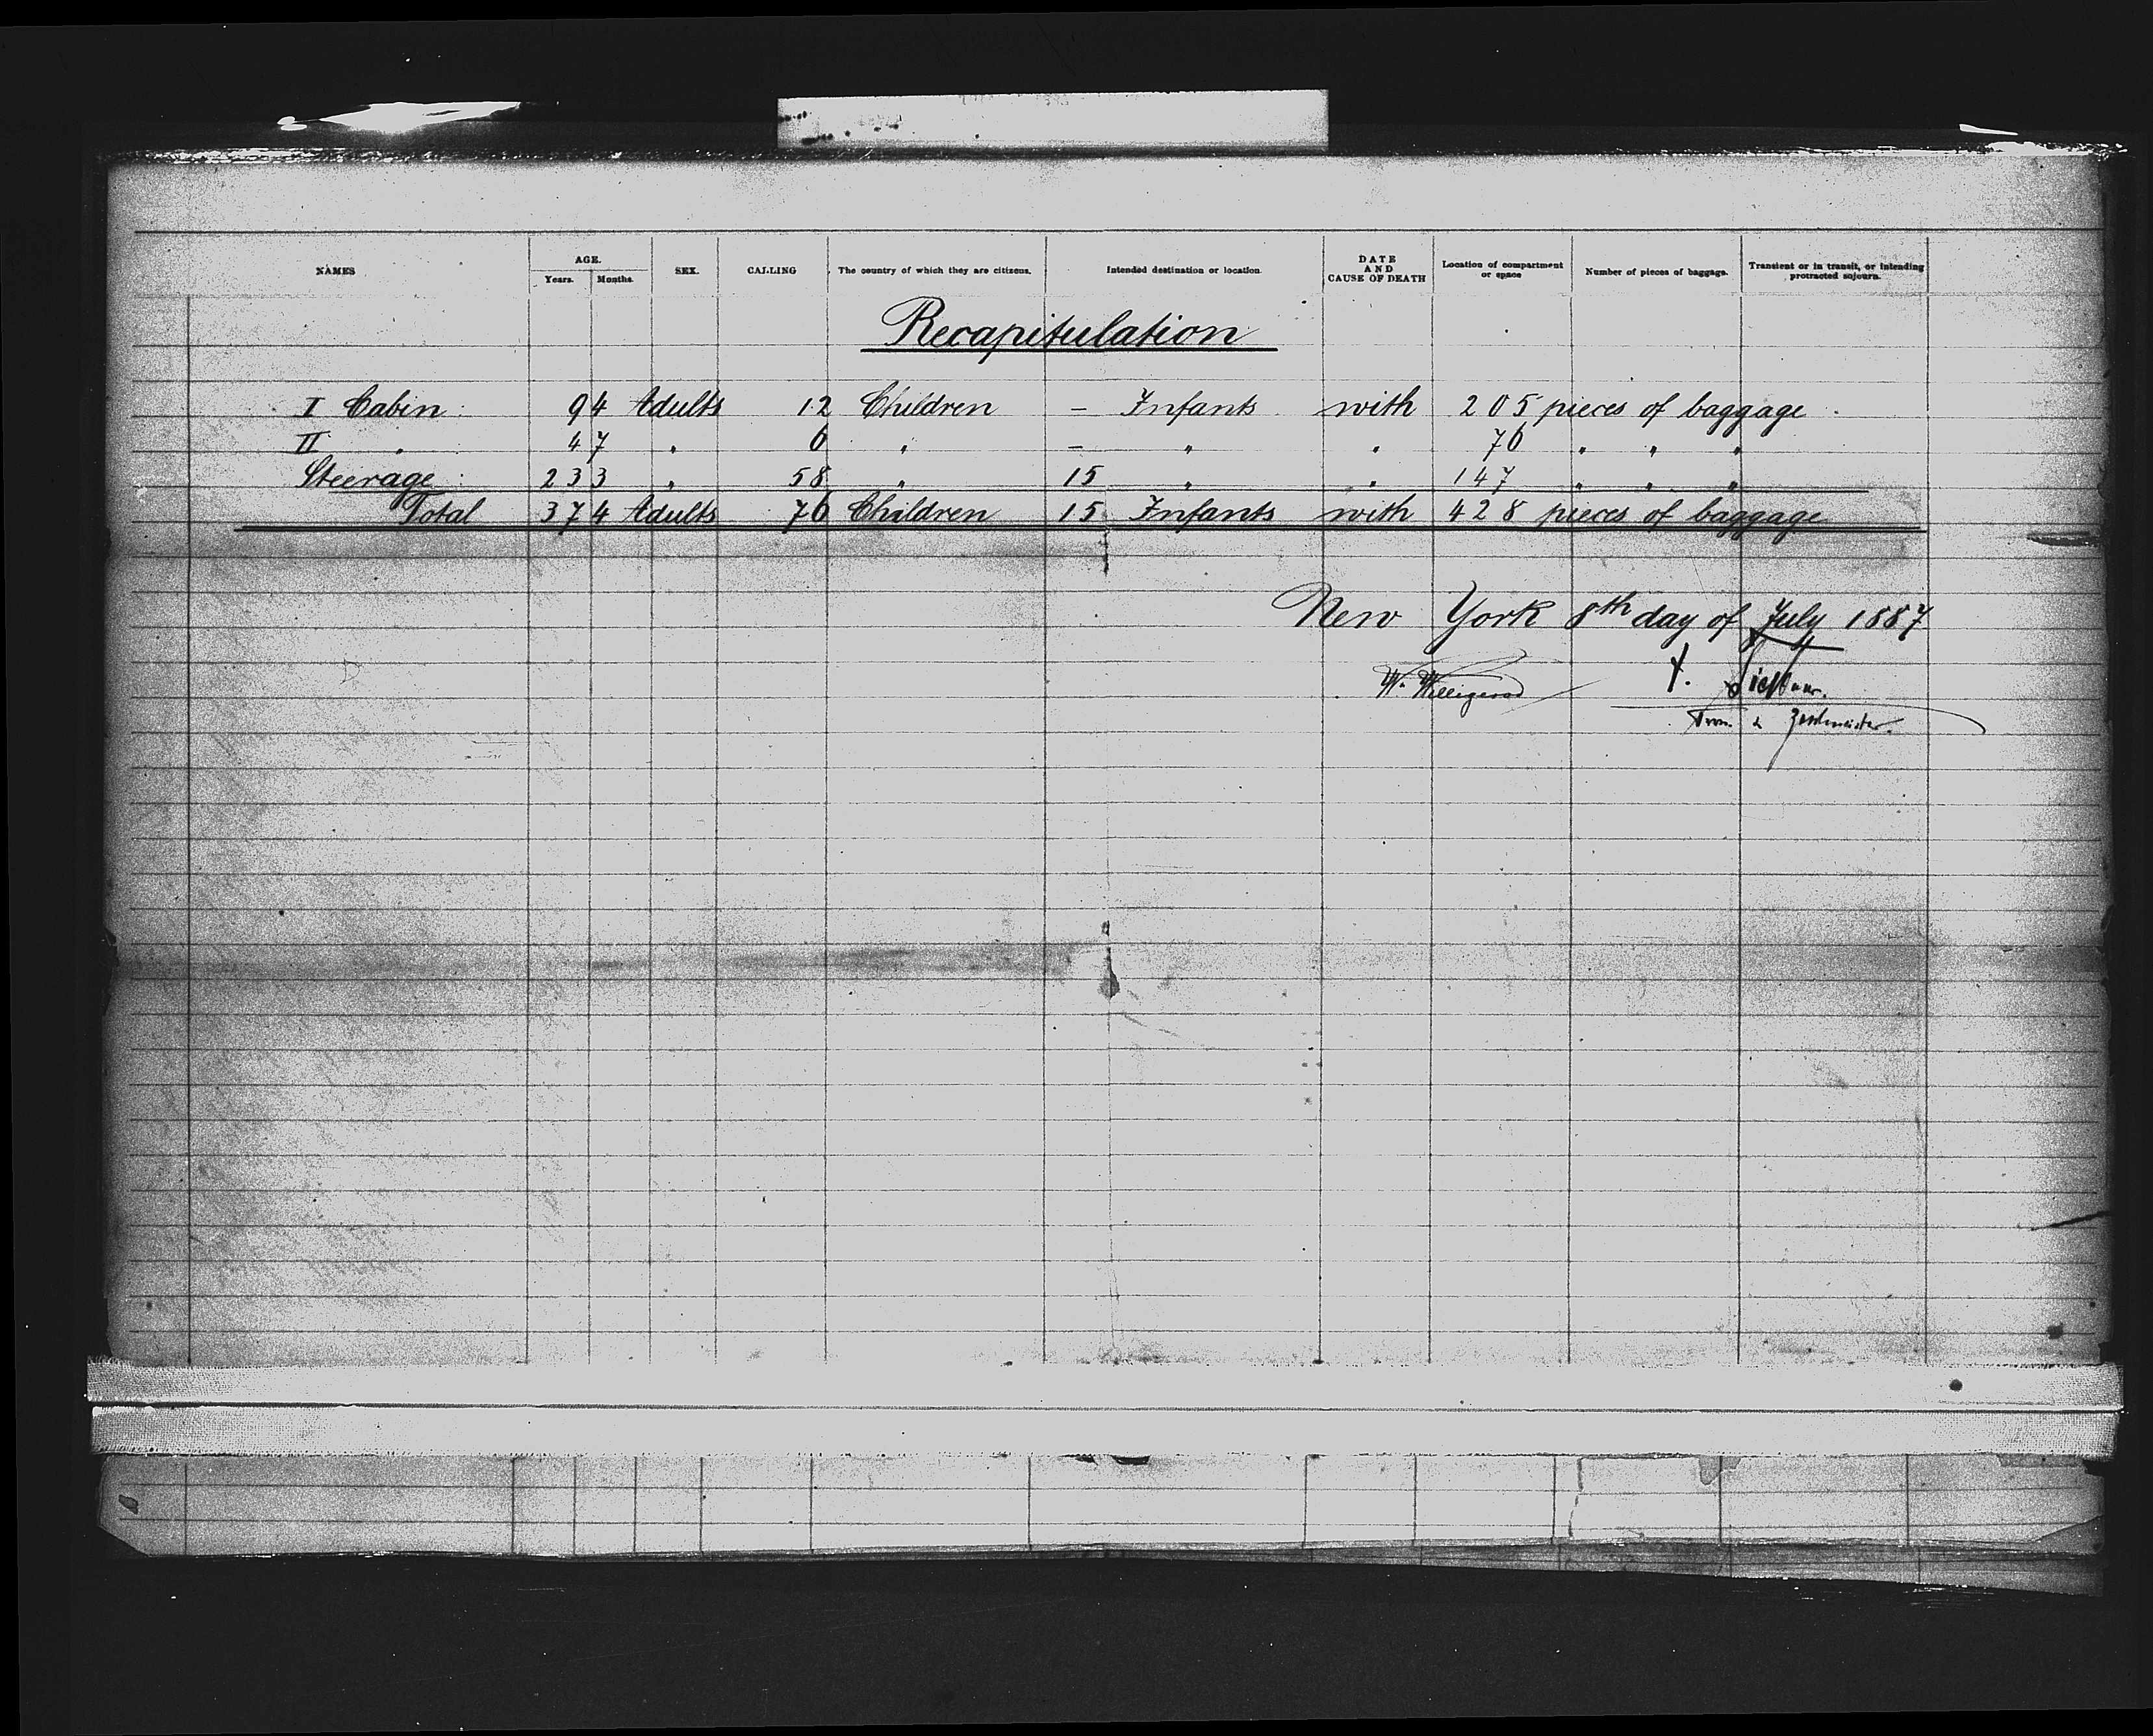 NAMES AGE. SEX. CALLING The country of which they are citizens. Intended destination or location. DATE AND CAUSE OF DEATH Location of compartment or space Number of pieces of baggage. Transient or in transit, or intending protracted sojourn.
Years. Months.
Recapitulation
I Cabin: 94 Adults 12 Children – Infants with 205 pieces of baggage.
II " 47 " 6 " – " " 76 " " "
Steerage: 233 " 58 " 15 " " 147 " " "
Total 374 Adults 76 Children 15 Infants with 428 pieces of baggage
New York 8th day of July 1887
W. Willigerod
&